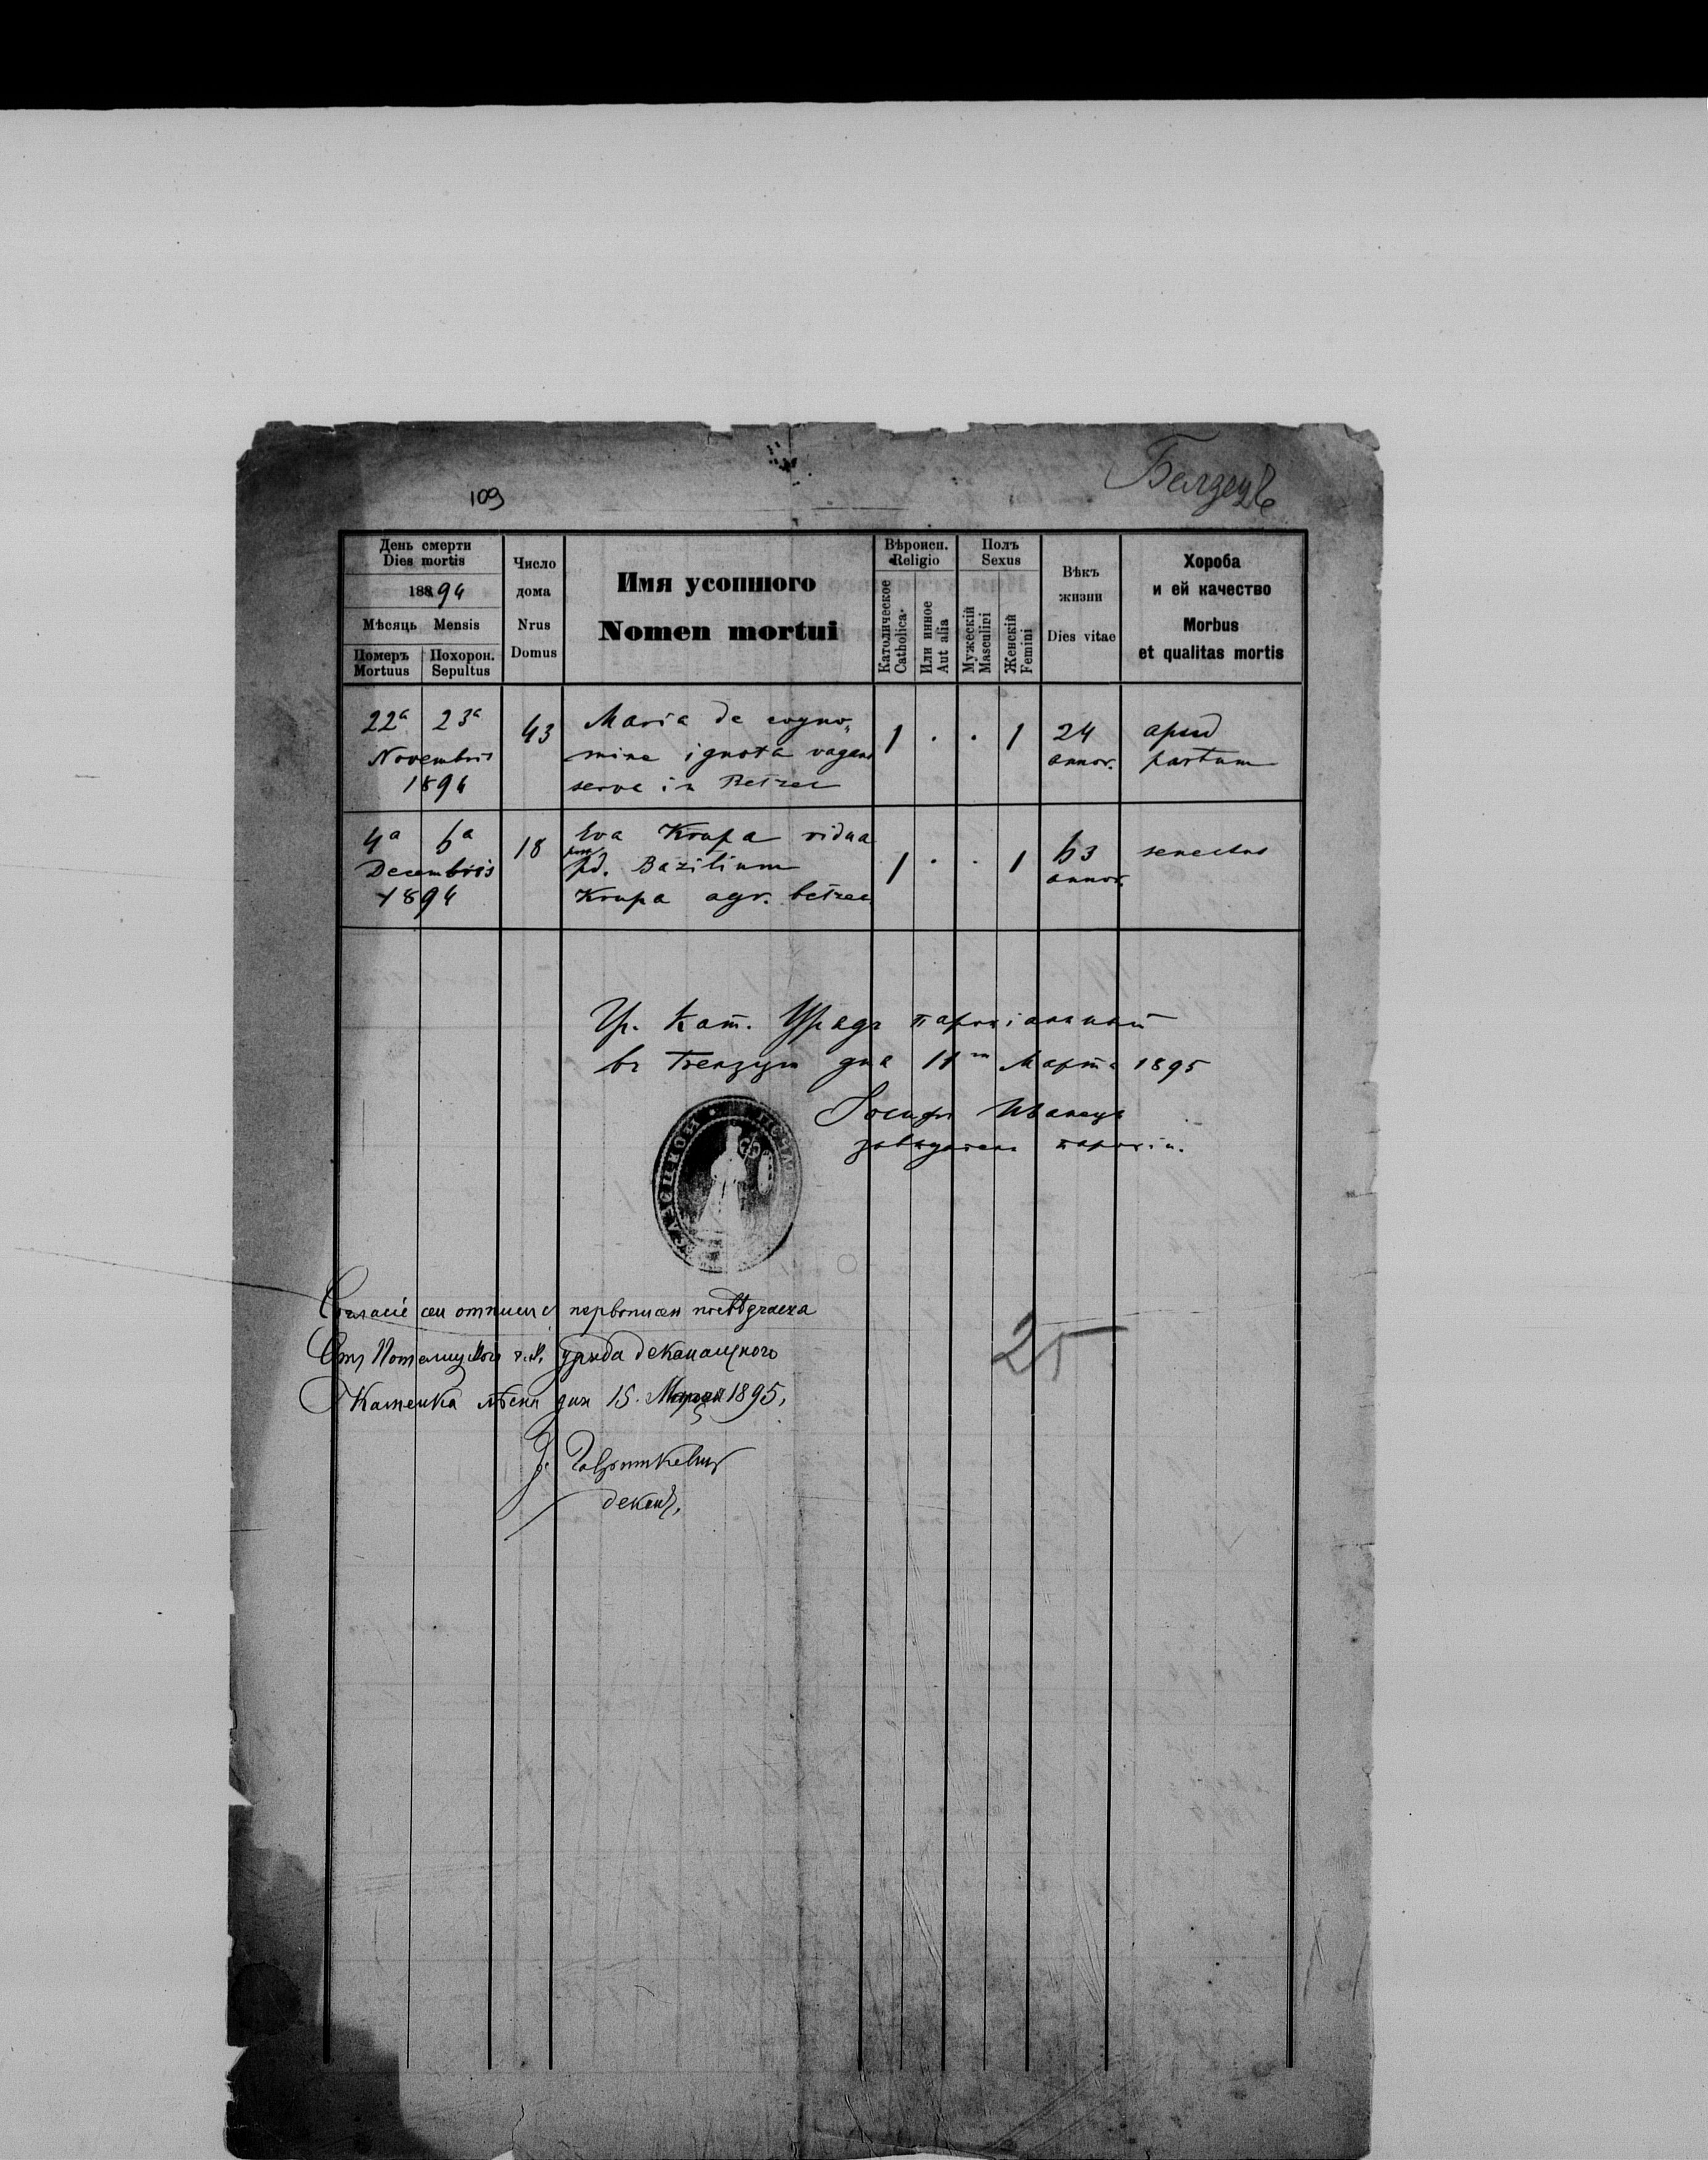 Белзецъ
109
День смерти
Dies mortis
188 94
Мѣсяць Mensis
Померъ Похорон.
Mortuus Sepultus
Число
дома
Nrus
Domus
Имя усопшого
Nomen mortui
Вѣроисп.
Religio
Католическое
Catholica
Или инное
Aut alia
Полъ
Sexus
Мужескій
Masculini
Женскій
Femini
Вѣкъ
жизни
Dies vitae
Хороба
и ей качество
Morbus
et qualitas mortis
22ª 23ª
Novembris
1894
43
Maria de cogno-
mine ignota vagans
serva in Bełzec
1 . . 1
24
annor.
apud
partum
4ª 6ª
Decembris
1894
18
Eva Krupa vidua
post
pd. Bazilium
Krupa agr. bełzec
1 . . 1
63
annor.
senectus
Гр. Кат. Урядъ парохіяльный
въ Белзци дня 11 Марта 1895
Іосифъ Иванецъ
завѣдатель парохіи.
Согласіе сеи отписи с первописем посвѣдчаеся
Отъ уряда деканацкого
Каменка дня 15. Марта 1895,
деканъ,
25